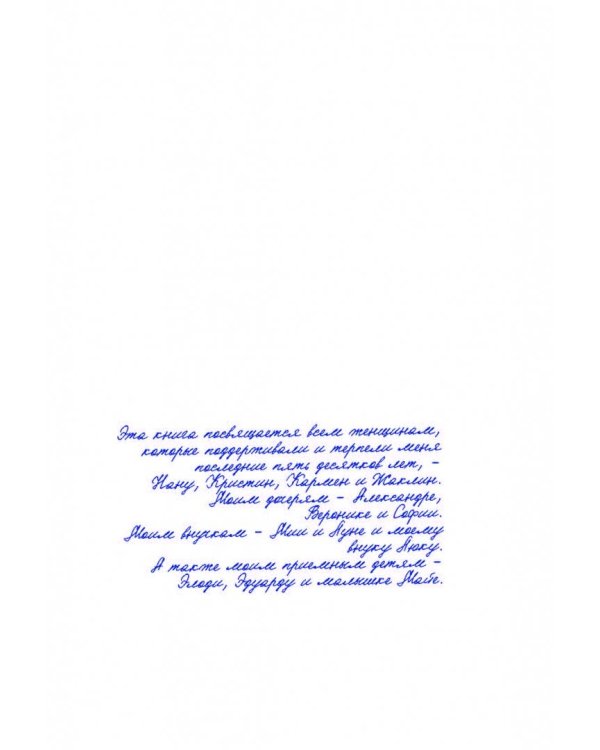 Эта книга посвящается всем женщинам,
которые поддерживали и терпели меня
последние пять десятков лет, –
Нану, Кристин, Кармен и Жаклин.
Моим дочерям – Александре,
Веронике и Софии.
Моим внучкам – Мии и Луне и моему
внуку Люку.
А также моим приемным детям –
Элоди, Эдуарду и малышке Маёе.